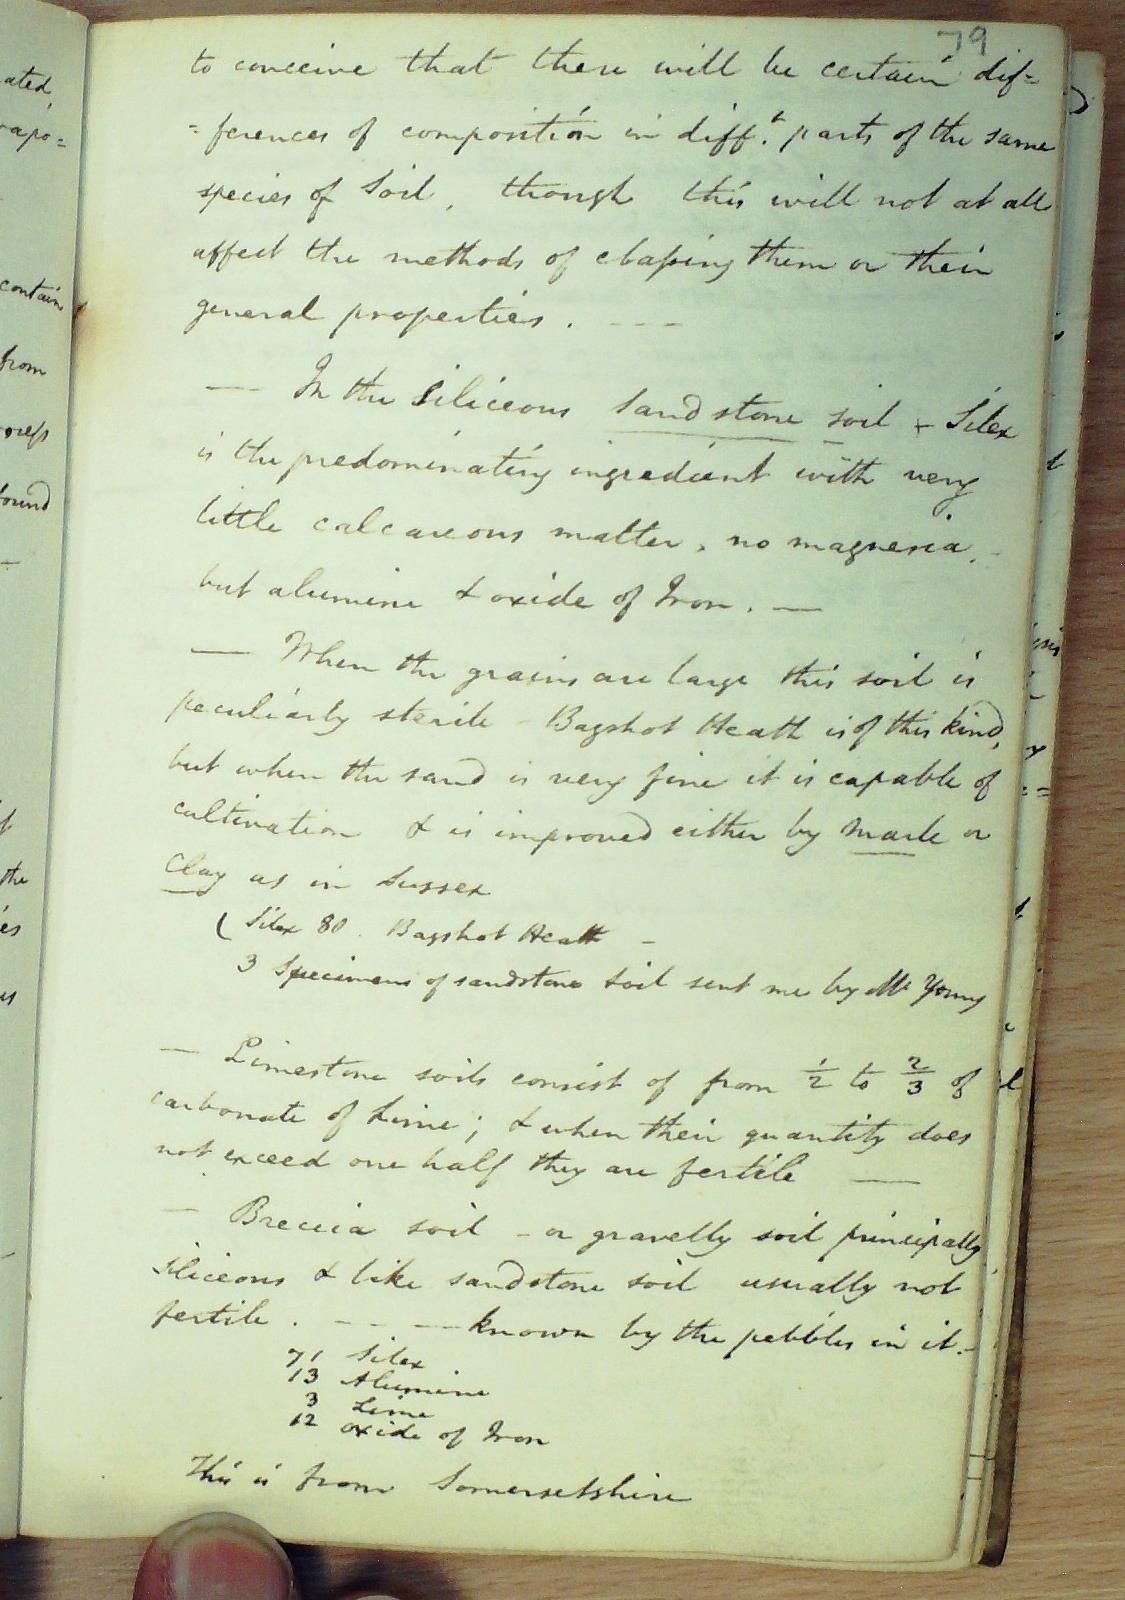 79
to conceive that there will be certain dif=
=ferences of composition in diff.t parts of the same
species of Soil, though this will not at all
affect the methods of classing them or their
general properties. - - -
— In the Siliceous Sandstone soil + Silex
is the predominating ingredient with very
little calcareous matter, no magnesia,
but alumine & oxide of Iron. —
— When the grains are large this soil is
peculiarly sterile - Bagshot Heath is of this kind,
but when the sand is very fine it is capable of
cultivation & is improved either by Marle or
Clay as in Sussex
( Silex 80. Bagshot Heath -
3 Specimens of sandstone Soil sent me by Mr Young
— Limestone soils consist of from 1/2 to 2/3 of
carbonate of Lime; & when their quantity does
not exceed one half they are fertile —
— Breccia soil - or gravelly soil principally
siliceous & like sandstone soil usually not
fertile. - - - known by the pebbles in it. -
71 Silex
13 Alumine
3 Lime
12 oxide of Iron
This is from Somersetshire
ated,
rapo=
contain
from
found
the